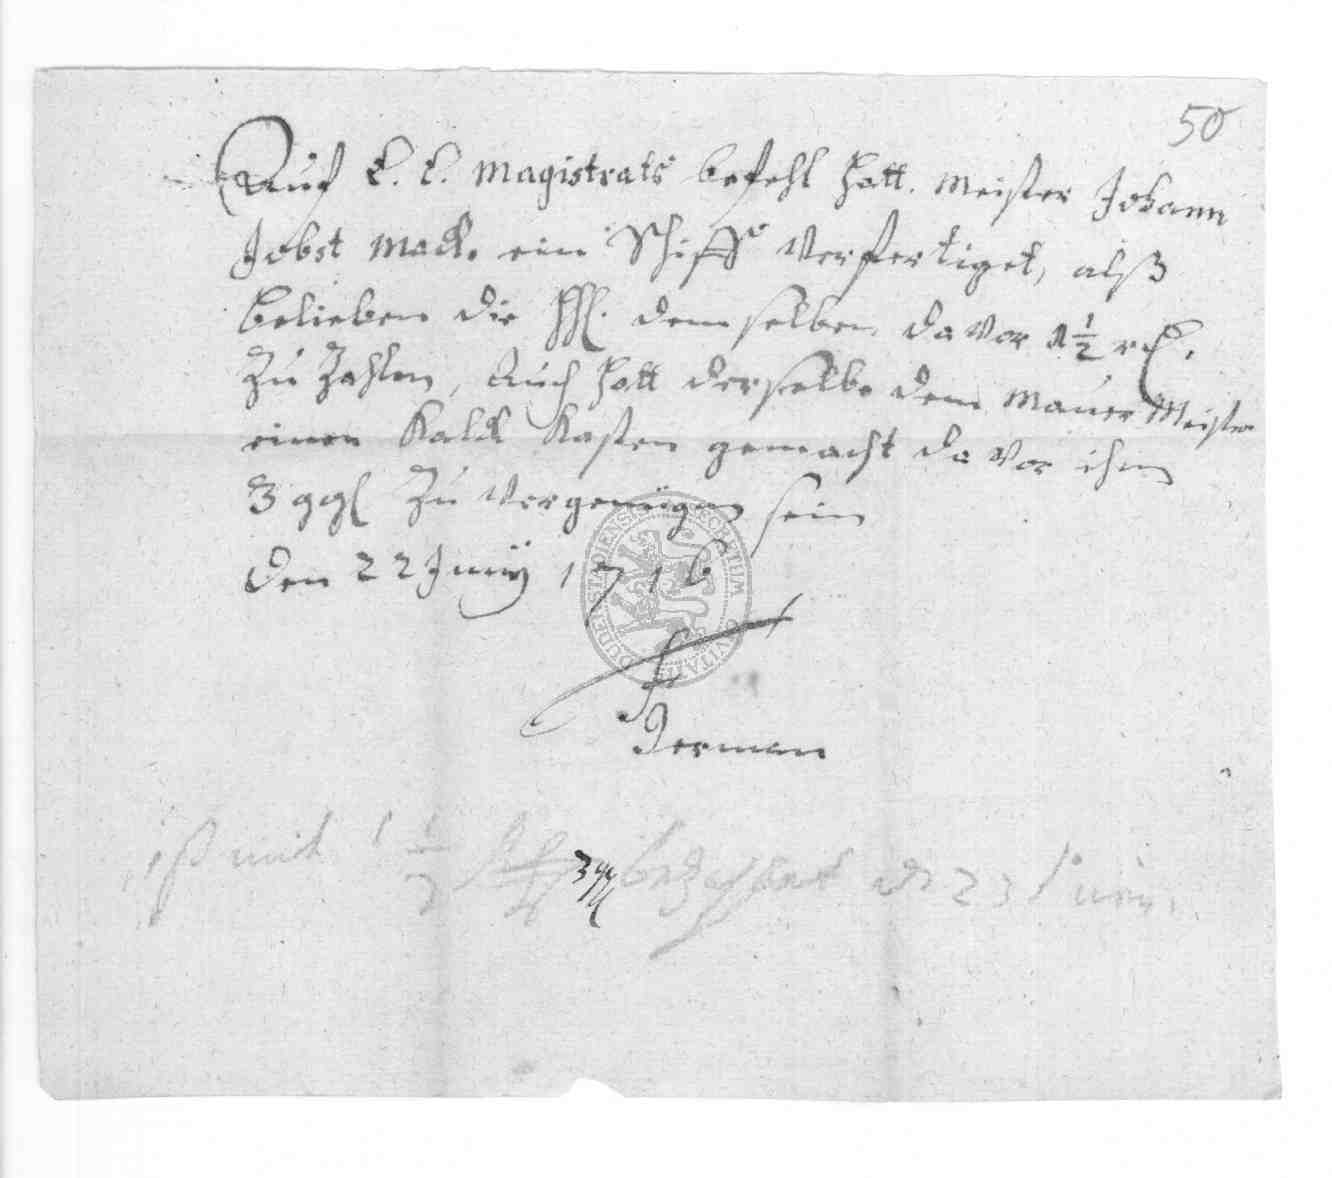 50
Auf E. E. Magistrats befehl hatt. Meister Johann
Jobst Mack. ein Schiff Verfertiget, alß
belieben die HH. demselben davor 1 1/2 rtl.
Zu Zahlen, Auch hatt derselbe dem Mauer Meister
einen Kalck Kasten gemacht da vor ihm
3 ggl Zu Vergenügen sein
den 22 Junij 1716
German
ist mit 1 1/2 3 ggl bezahlet d 23 Junij
SIGILLUM CIVITATIS DUDERSTADIENSIS